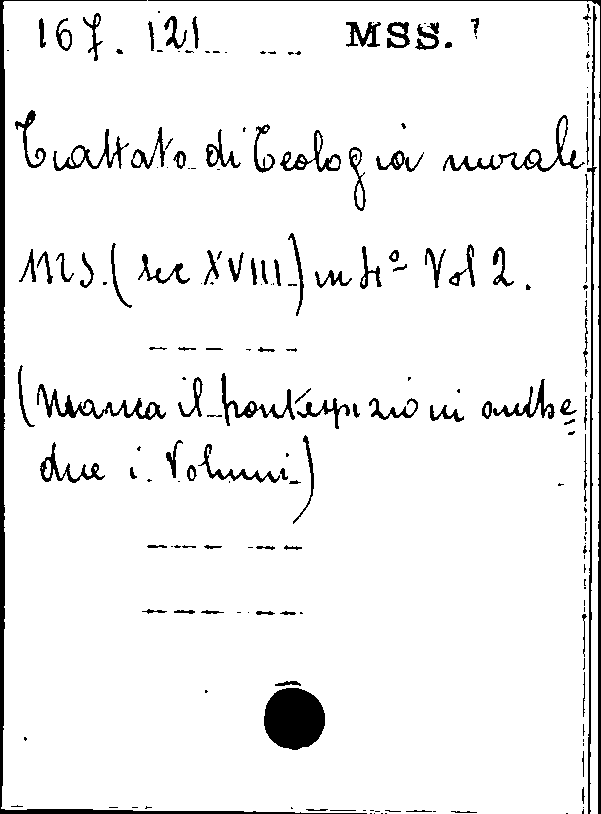 167. 121 MSS.
Trattato di Teologia morale
MS. (sec XVIII) in 4º Vol 2.
(Manca il frontespizio in ambe=
due i Volumi)